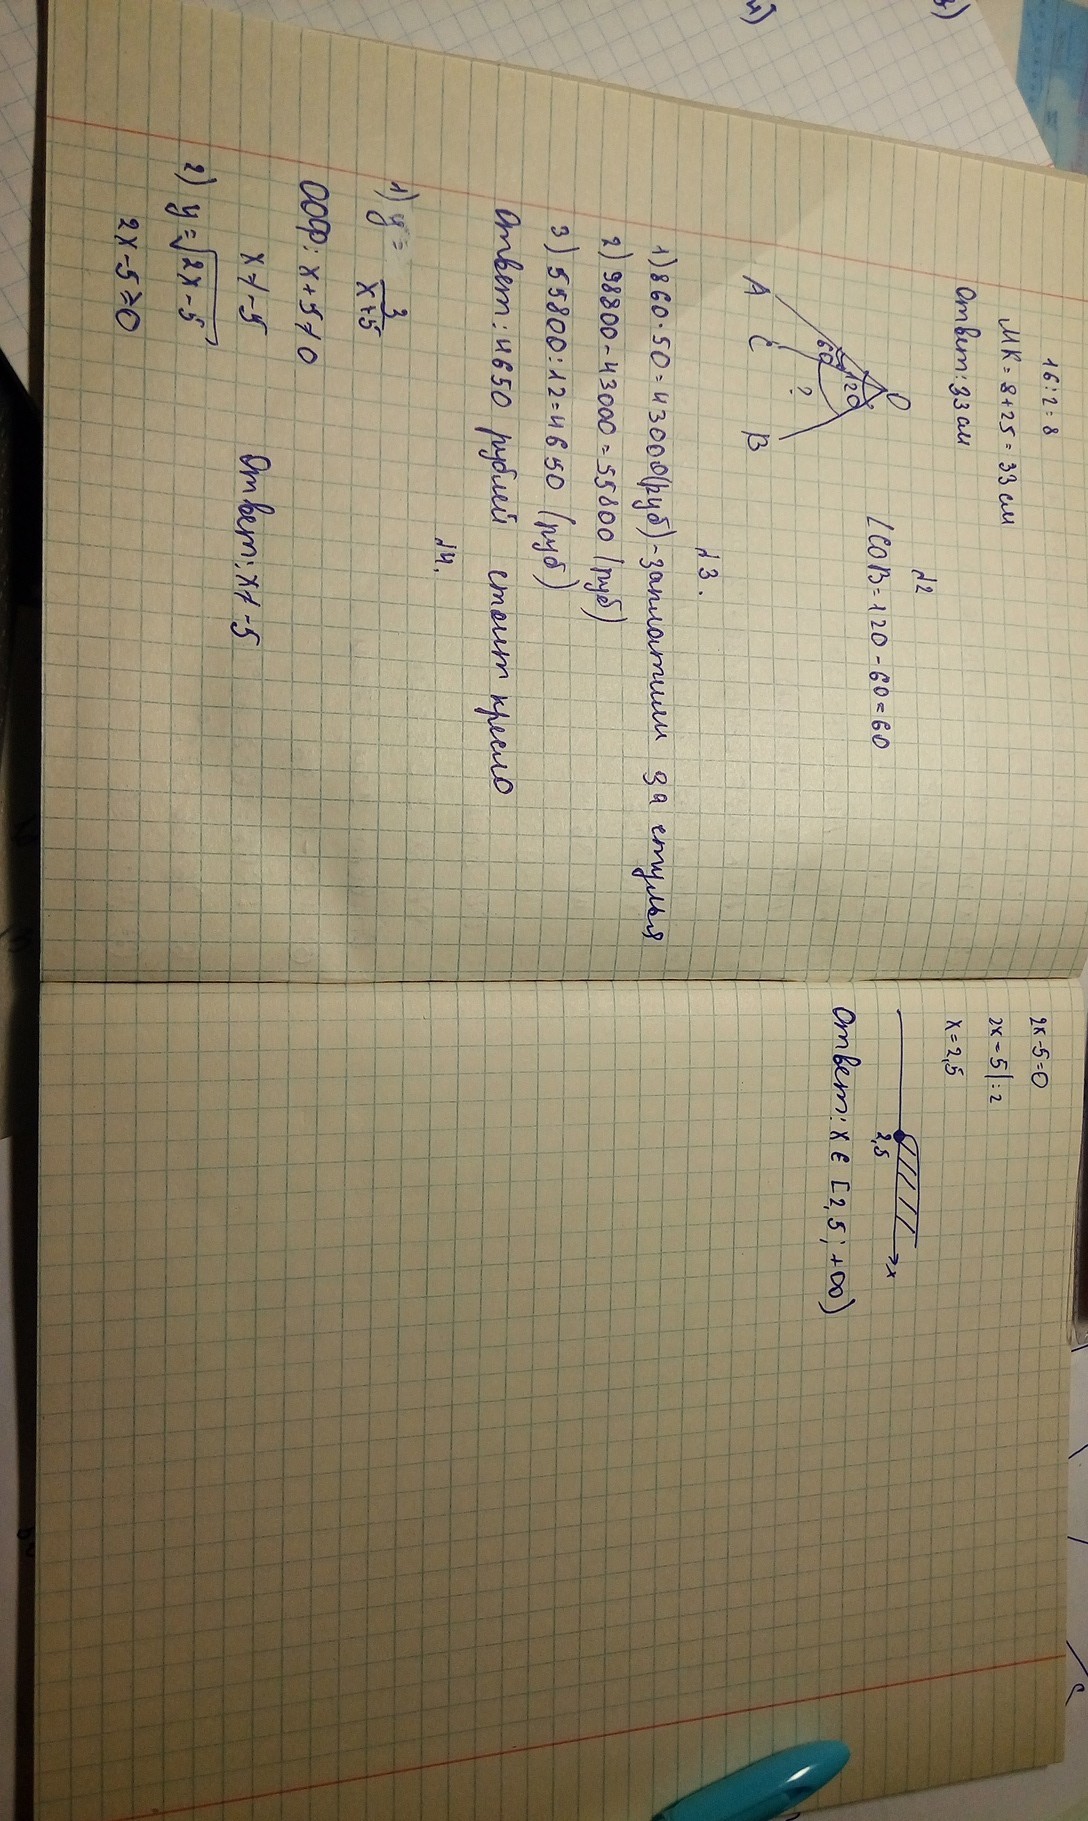 16:2=8
МК=8+25=33см
Ответ: 33см
№2
О
120
60
А
С
?
В
∠СОВ=120-60=60
№3.
1) 860·50=43000(руб)-заплатили за стулья
2) 98800-43000=55800 (руб)
3) 55800:12=4650 (руб)
Ответ: 4650 рублей стоит кресло
№4.
1) y = 3/(x+5)
ООФ: x+5≠0
x≠-5
Ответ: x≠-5
2) y=√(2x-5)
2x-5≥0
2x-5=0
2x=5|:2
x=2,5
2,5
x
Ответ: x∈[2,5;+∞)